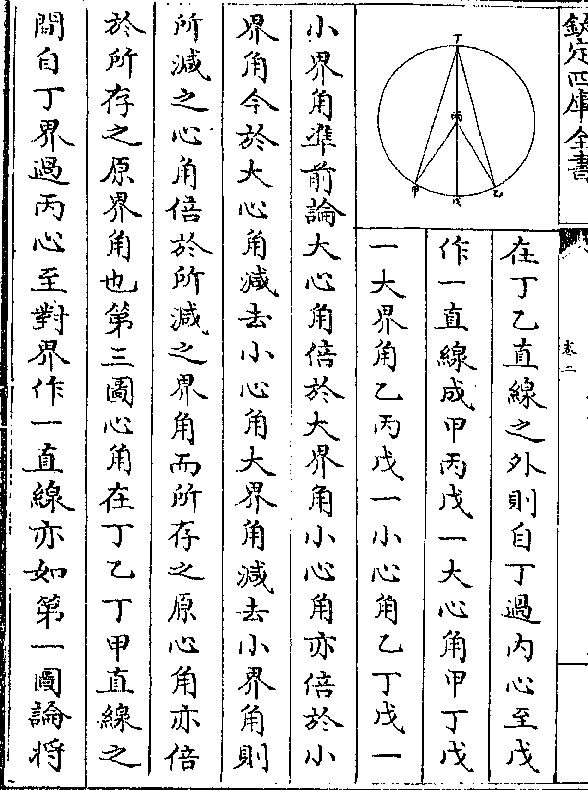 欽定四庫全書
卷二
丁
丙
甲
戊
乙
在丁乙直線之外則自丁過丙心至戊
作一直線成甲丙戊一大心角甲丁戊
一大界角乙丙戊一小心角乙丁戊一
小界角準前論大心角倍於大界角小心角亦倍於小
界角今於大心角減去小心角大界角減去小界角則
所減之心角倍於所減之界角而所存之原心角亦倍
於所存之原界角也第三圖心角在丁乙丁甲直線之
間自丁界過丙心至對界作一直線亦如第一圖論將